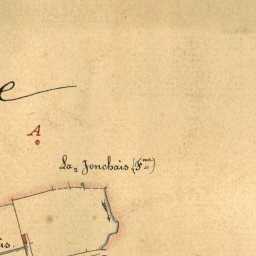 e
A
La Jonchais (F^me)
is.